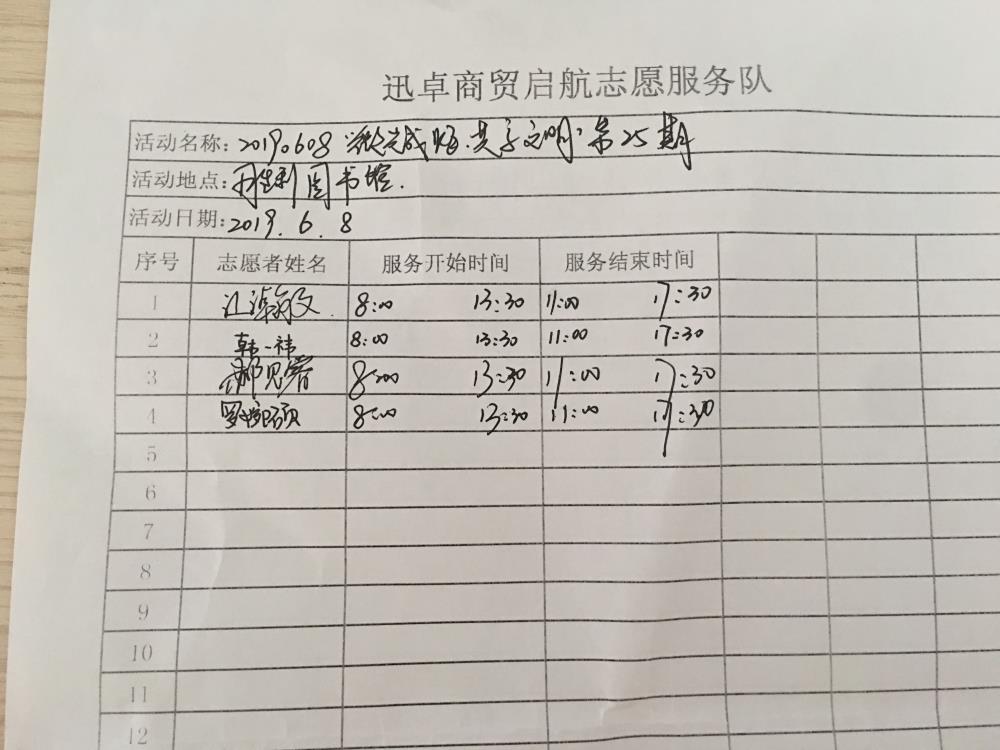 迅卓商贸启航志愿服务队
活动名称：2019.608 文明 第25期
活动地点：胜利图书馆.
活动日期：2019.6.8
序号 志愿者姓名 服务开始时间 服务结束时间
1 8:00 13:30 11:00 17:30
2 韩一祎 8:00 13:30 11:00 17:30
3 8:00 13:30 11:00 17:30
4 8:00 13:30 11:00 17:30
5
6
7
8
9
10
11
12